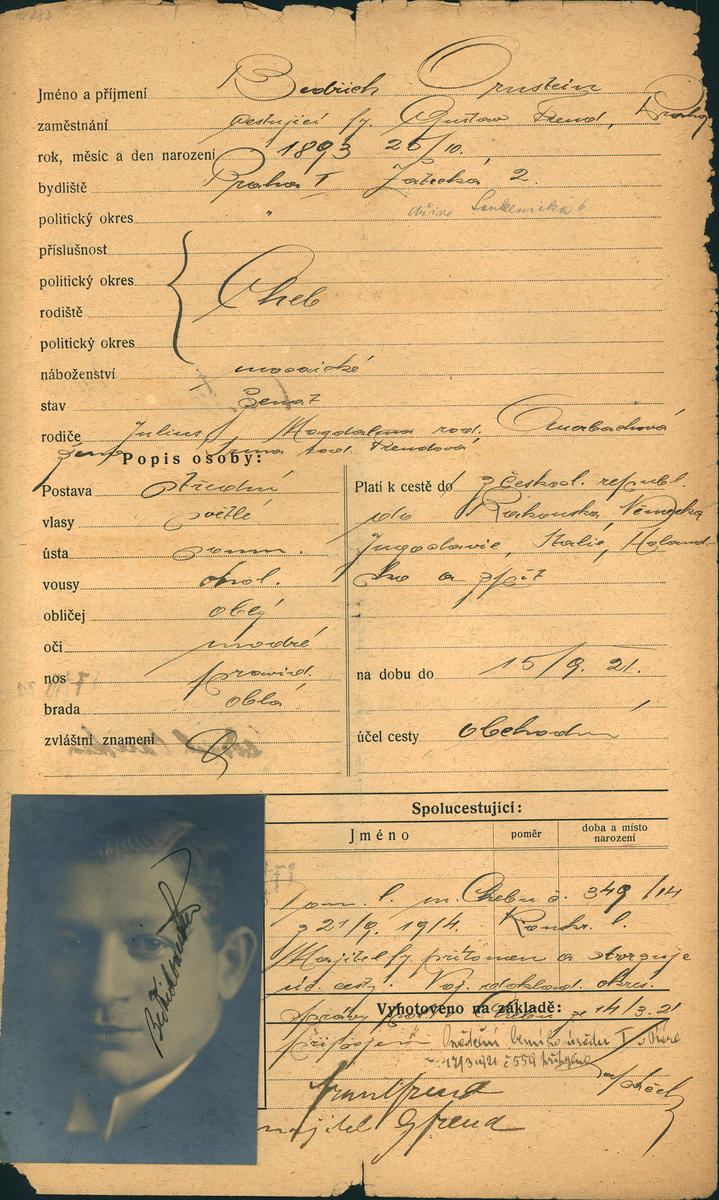 Jméno a příjmení Bedřich Ornstein
zaměstnání cestující fy. Gustav Freud, Praha
rok, měsíc a den narození 1893 26/10.
bydliště Praha I Žatecká 2.
politický okres "
příslušnost
politický okres Cheb
rodiště
politický okres
náboženství mosaické
stav ženat
rodiče Julius, Magdalena rod. Auerbachová
žena rod. Freudová
Popis osoby:
Postava střední
vlasy světlé
ústa
vousy ohol.
obličej oblý
oči modré
nos pravid.
brada oblá
zvláštní znamení
Platí k cestě do z Českosl. republ.
do Rakouska, Německa
Jugoslavie, Italie, Holand-
ska a zpět
na dobu do 15/9. 21.
účel cesty obchodní
Spolucestující:
Jméno poměr doba a místo narození
Dom. l. m. Chebu č. 349/14
z 21/9. 1914. Konskr. l.
Majitel fy přítomen a stvrzuje
úč. cesty. Voj. doklad. okres.
správy Cheb z 14/3. 21
Vyhotoveno na základě:
připojen
17/3 1921 č 554
majitel G Freud